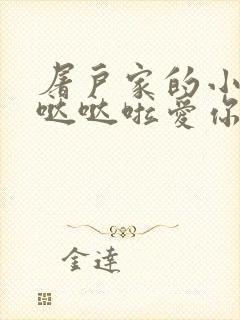 屠户家的小
哒哒啦爱你
金達